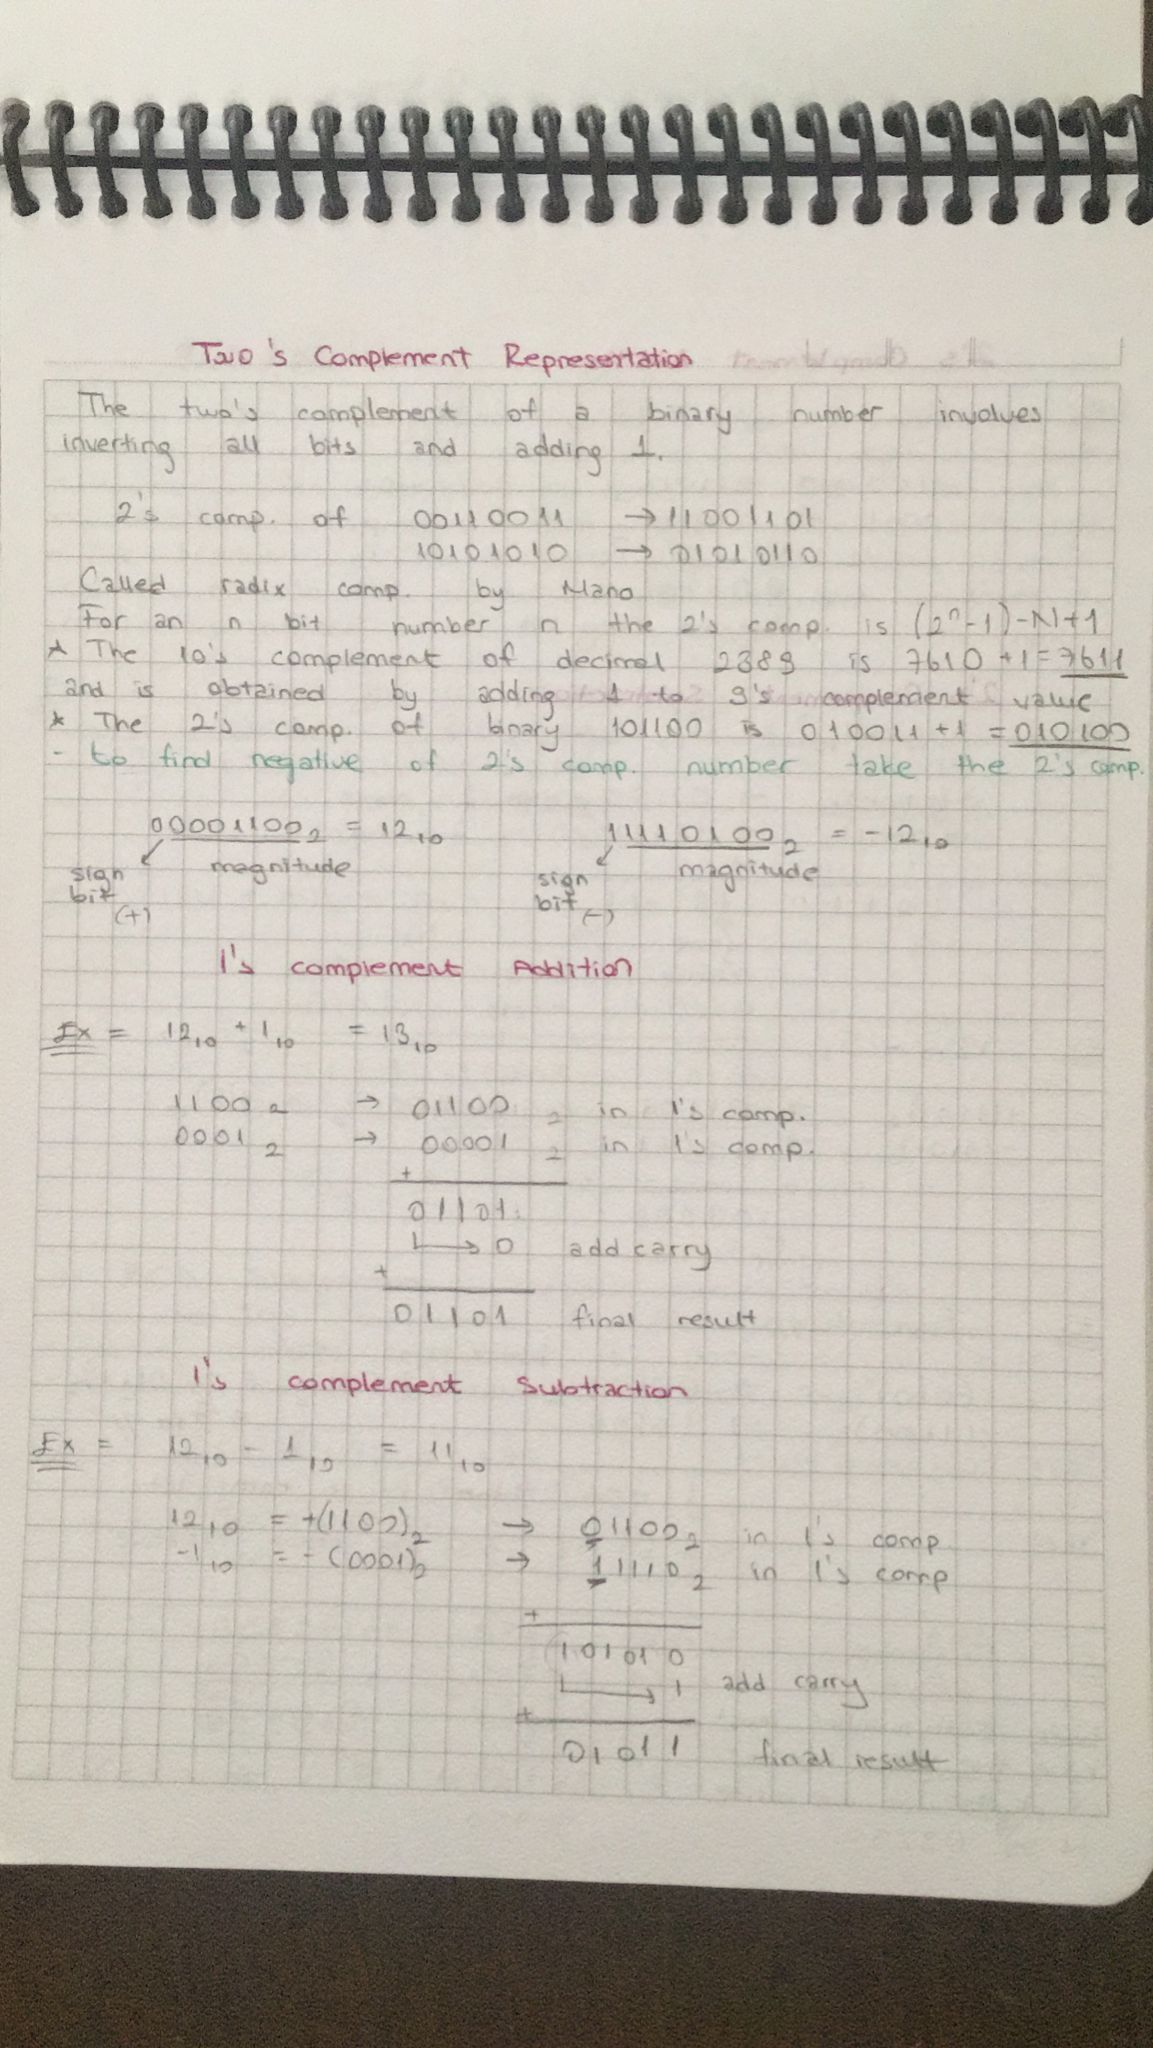 Two's Complement Represertation
The two's complement of a binary number involves
inverting all bits and adding 1.
2's comp. of 00110011 → 11001101
10101010 → 01010110
Called radix comp. by Mano
For an n bit number n the 2's comp. is (2ⁿ-1)-N+1
* The 10's complement of decimal 2389 is 7610 +1 = 7611
and is obtained by adding 1 to 9's complement value
* The 2's comp. of binary 101100 is 010011 +1 = 010100
- to find negative of 2's comp. number take the 2's comp.
00001100₂ = 12₁₀ 11110100₂ = -12₁₀
sign bit (+) magnitude sign bit (-) magnitude
1's complement Addition
Ex = 12₁₀ + 1₁₀ = 13₁₀
1100₂ → 01100₂ in 1's comp.
0001₂ → 00001₂ in 1's comp.
+
01101
→ 0 add carry
+
01101 final result
1's complement Subtraction
Ex = 12₁₀ - 1₁₀ = 11₁₀
12₁₀ = +(1100)₂ → 01100₂ in 1's comp
-1₁₀ = -(0001)₂ → 11110₂ in 1's comp
+
101010
→ 1 add carry
+
01011 final result